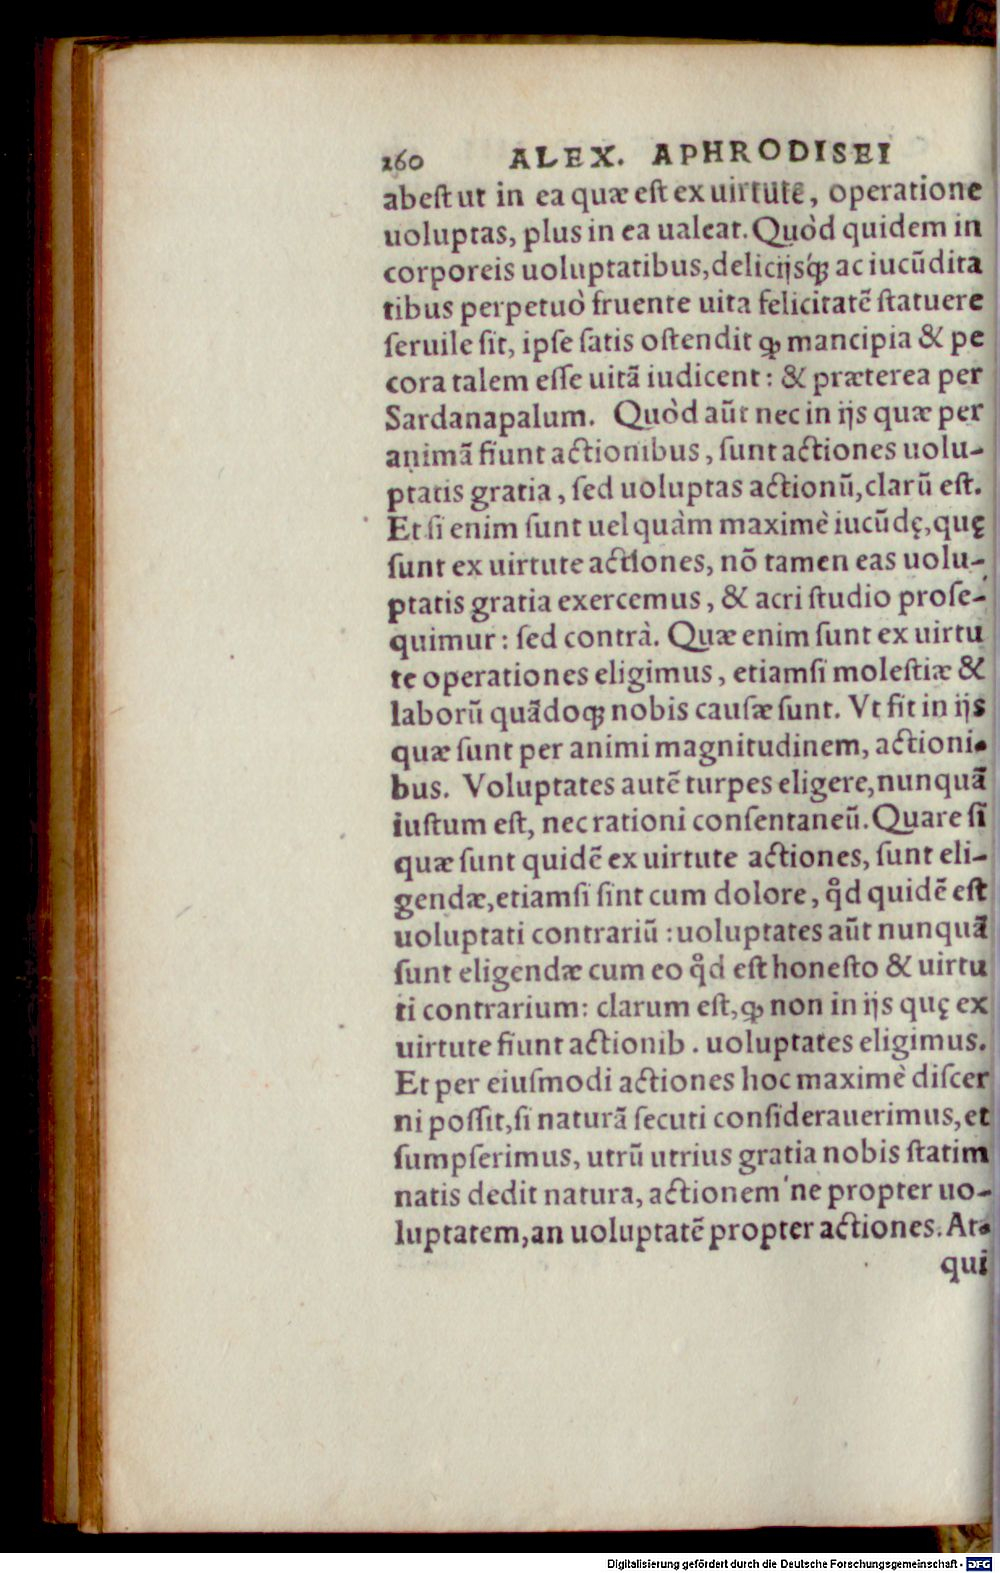 260 ALEX. APHRODISEI
abeſt ut in ea quæ eſt ex uirtute, operatione
uoluptas, plus in ea ualeat. Quòd quidem in
corporeis uoluptatibus, delicijsq́ꝫ ac iucūdita
tibus perpetuò fruente uita felicitatē ſtatuere
ſeruile ſit, ipſe ſatis oſtendit ꝙ mancipia & pe
cora talem eſſe uitā iudicent: & præterea per
Sardanapalum. Quòd aūt nec in ijs quæ per
animā fiunt actionibus, ſunt actiones uolu-
ptatis gratia, ſed uoluptas actionū, clarū eſt.
Et ſi enim ſunt uel quàm maximè iucūdę, quę
ſunt ex uirtute actiones, nō tamen eas uolu-
ptatis gratia exercemus, & acri ſtudio proſe-
quimur: ſed contrà. Quæ enim ſunt ex uirtu
te operationes eligimus, etiamſi moleſtiæ &
laborū quādoqꝫ nobis cauſæ ſunt. Vt fit in ijs
quæ ſunt per animi magnitudinem, actioni-
bus. Voluptates autē turpes eligere, nunquā
iuſtum eſt, nec rationi conſentaneū. Quare ſi
quæ ſunt quidē ex uirtute actiones, ſunt eli-
gendæ, etiamſi ſint cum dolore, qd̊ quidē eſt
uoluptati contrariū: uoluptates aūt nunquā
ſunt eligendæ cum eo qd̊ eſt honeſto & uirtu
ti contrarium: clarum eſt, ꝙ non in ijs quę ex
uirtute fiunt actionib. uoluptates eligimus.
Et per eiuſmodi actiones hoc maximè diſcer
ni poſſit, ſi naturā ſecuti conſiderauerimus, et
ſumpſerimus, utrū utrius gratia nobis ſtatim
natis dedit natura, actionem'ne propter uo-
luptatem, an uoluptatē propter actiones. At-
qui
Digitalisierung gefördert durch die Deutsche Forschungsgemeinschaft - DFG